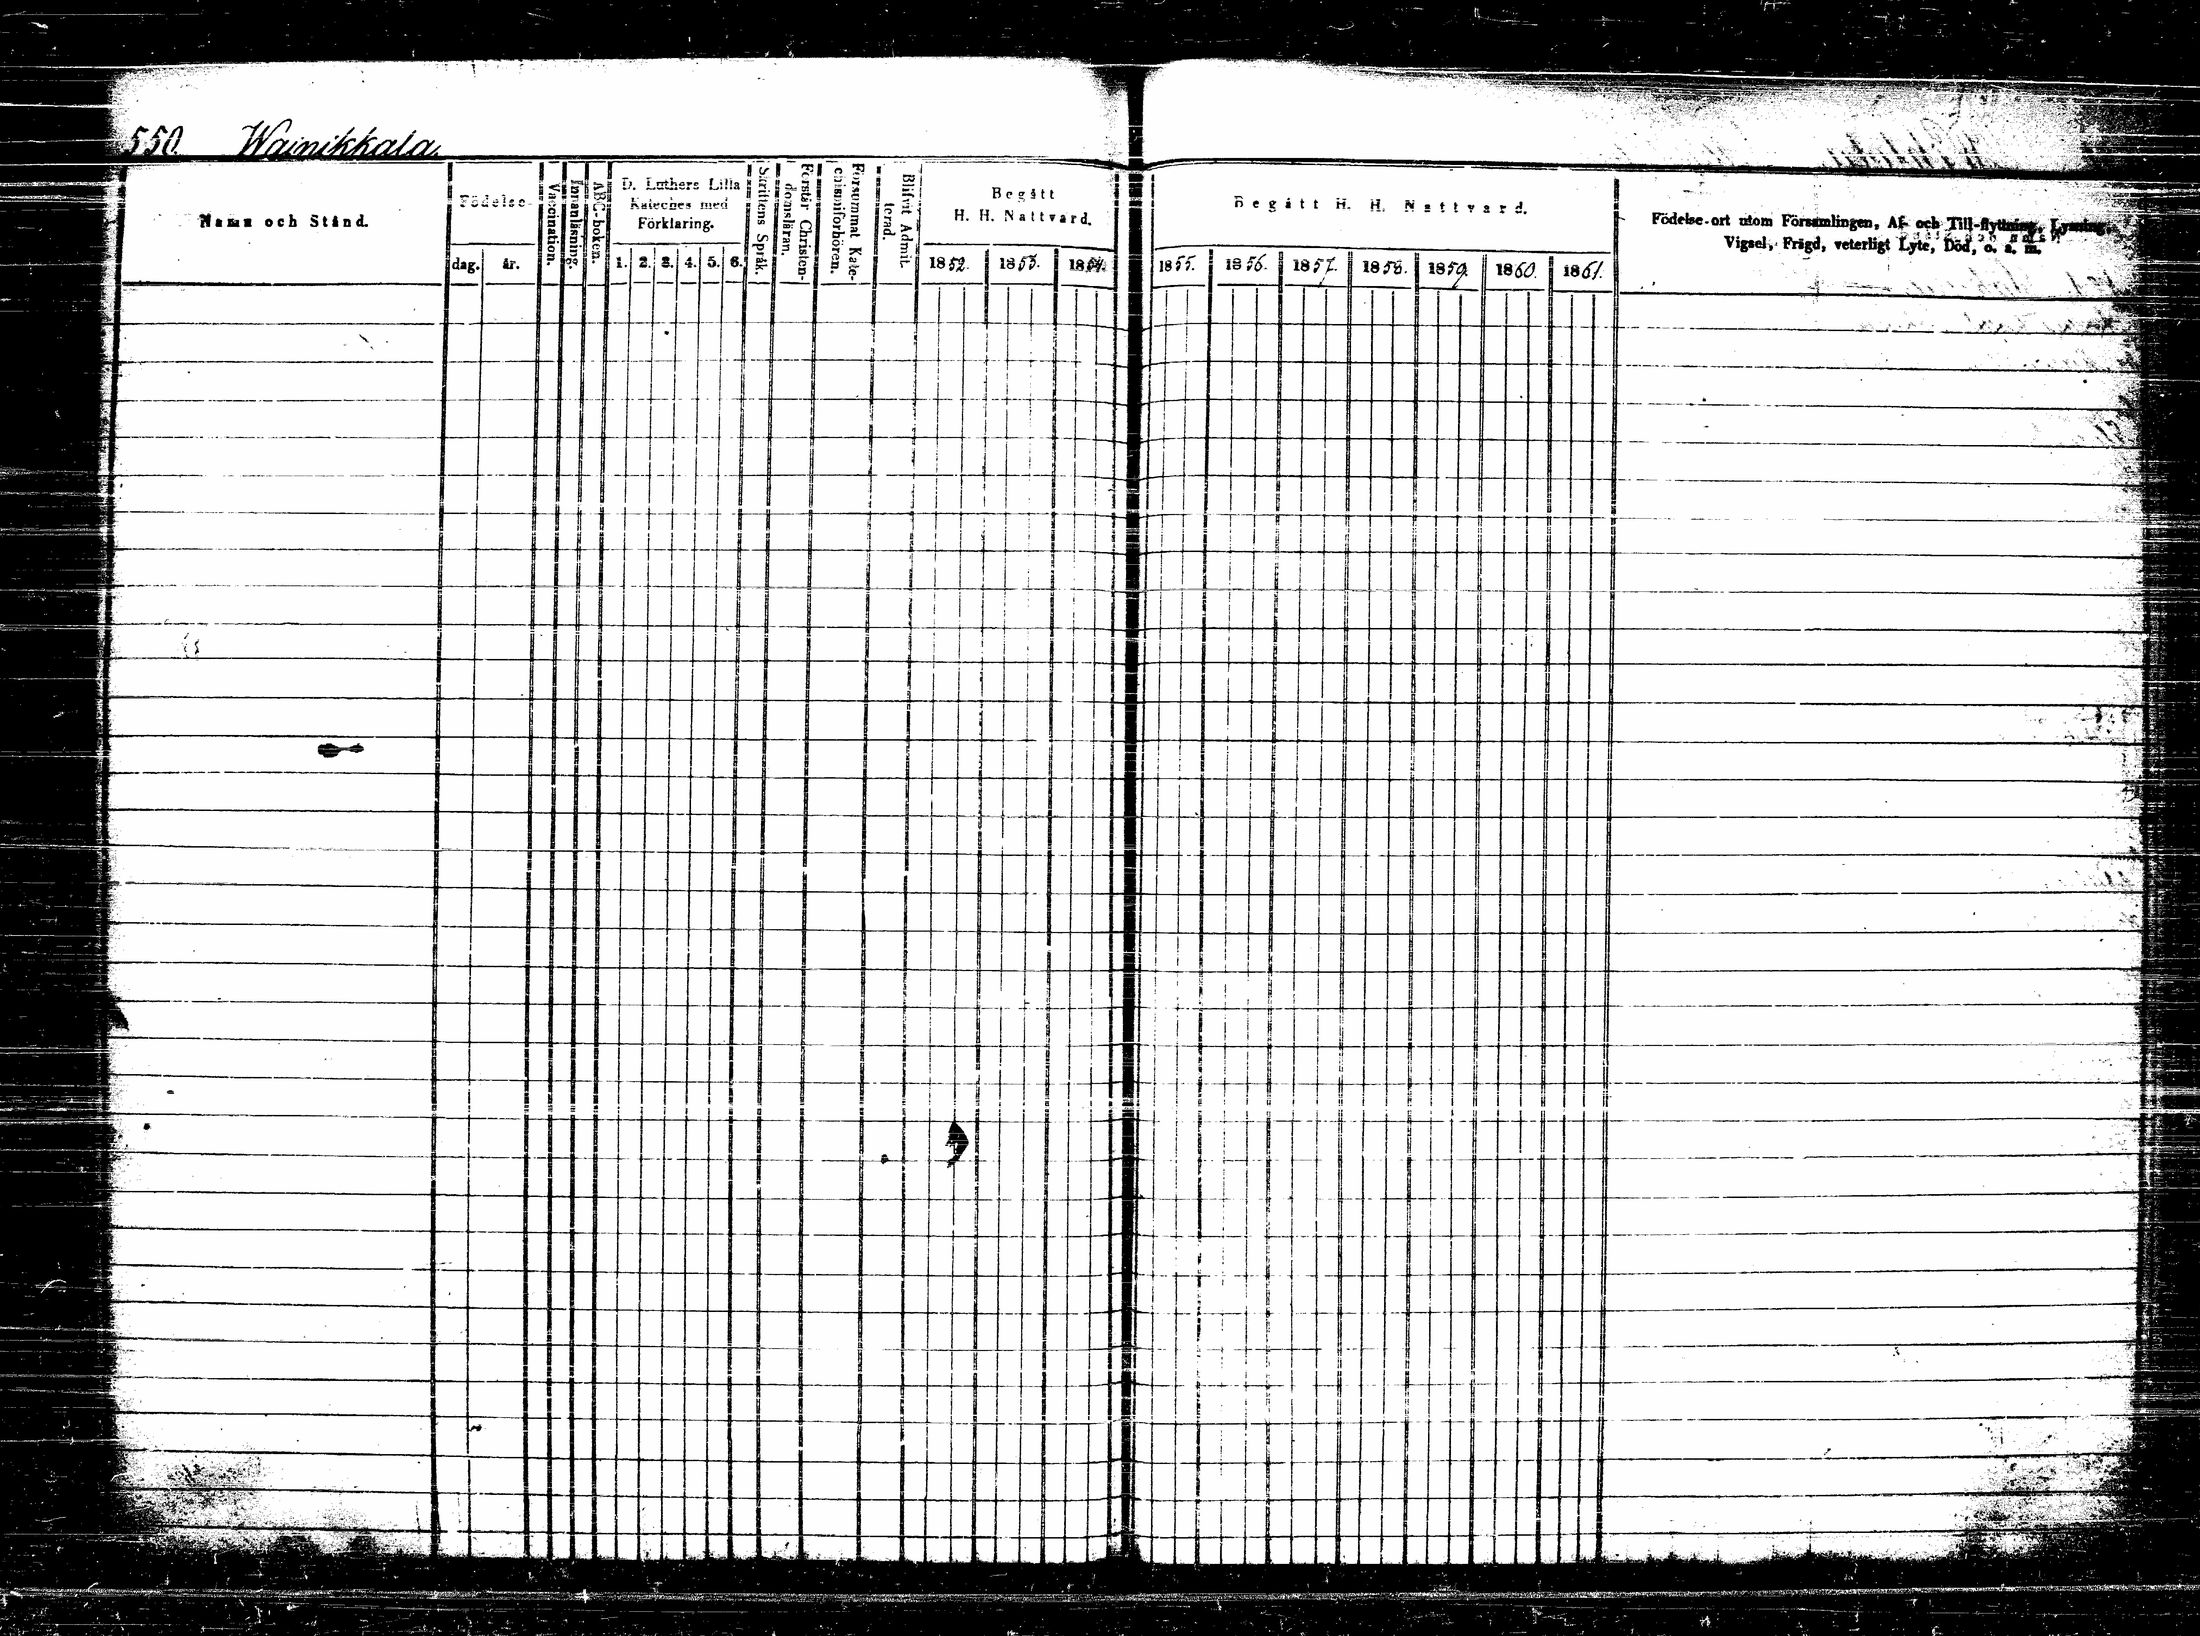 550. Wainikkala.
Namn och Stånd.
Födelse-
dag.
år.
Vaccination.
Innanläsning.
ABC-boken.
D. Luthers Lilla
Kateches med
Förklaring.
1. 2. 3. 4. 5. 6.
Skriftens Språk.
Förstår Christen-
domsläran.
Försummat Kate-
chismiförhören.
Blifvit Admit-
terad.
Begått
H. H. Nattvard.
1852. 1853. 1854.
Begått H. H. Nattvard.
1855. 1856. 1857. 1858. 1859. 1860. 1861.
Födelse-ort utom Församlingen, Af- och Till-flyttning, Lysning,
Vigsel, Frägd, veterligt Lyte, Död, o. a. m.